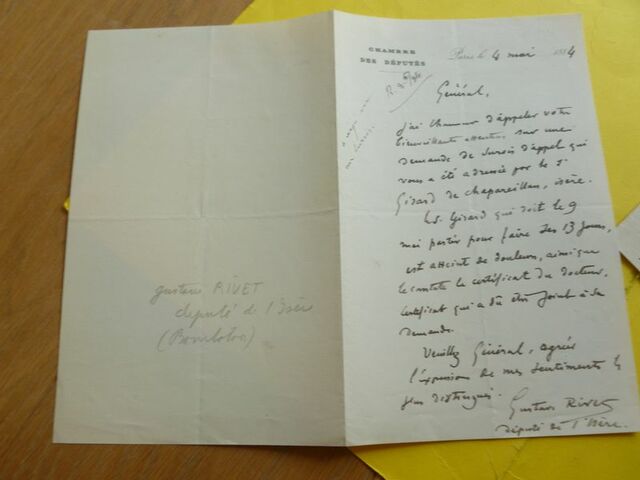 CHAMBRE
DES DÉPUTÉS
Paris le 4 mai 1884
Général,
J'ai l'honneur d'appeler votre
bienveillante attention sur une
demande de sursis d'appel qui
vous a été adressée par le Sr
Girard de Chapareillan, isère.
Le S. Girard qui doit le 9
mai partir pour faire ses 13 jours,
est atteint de douleurs, ainsi que
le constate le certificat du docteur,
certificat qui a dû être joint à sa
demande.
Veuillez Général, agréer
l'expression de mes sentiments les
plus distingués.
Gustave Rivet
député de l'Isère.
gustave RIVET
député de l'Isère